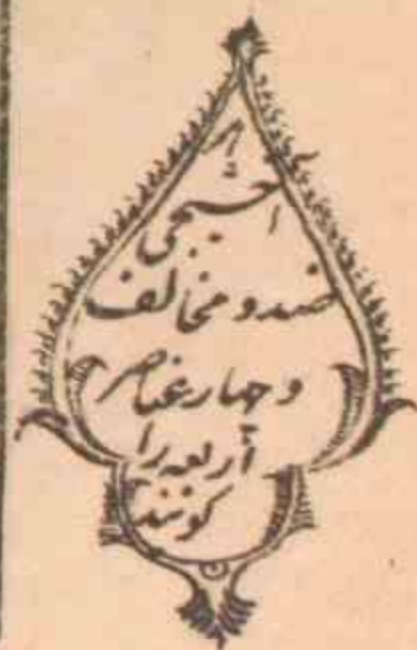 اخشیجی
ضد و مخالف
و چهار عناصر
اربعه را
کویند